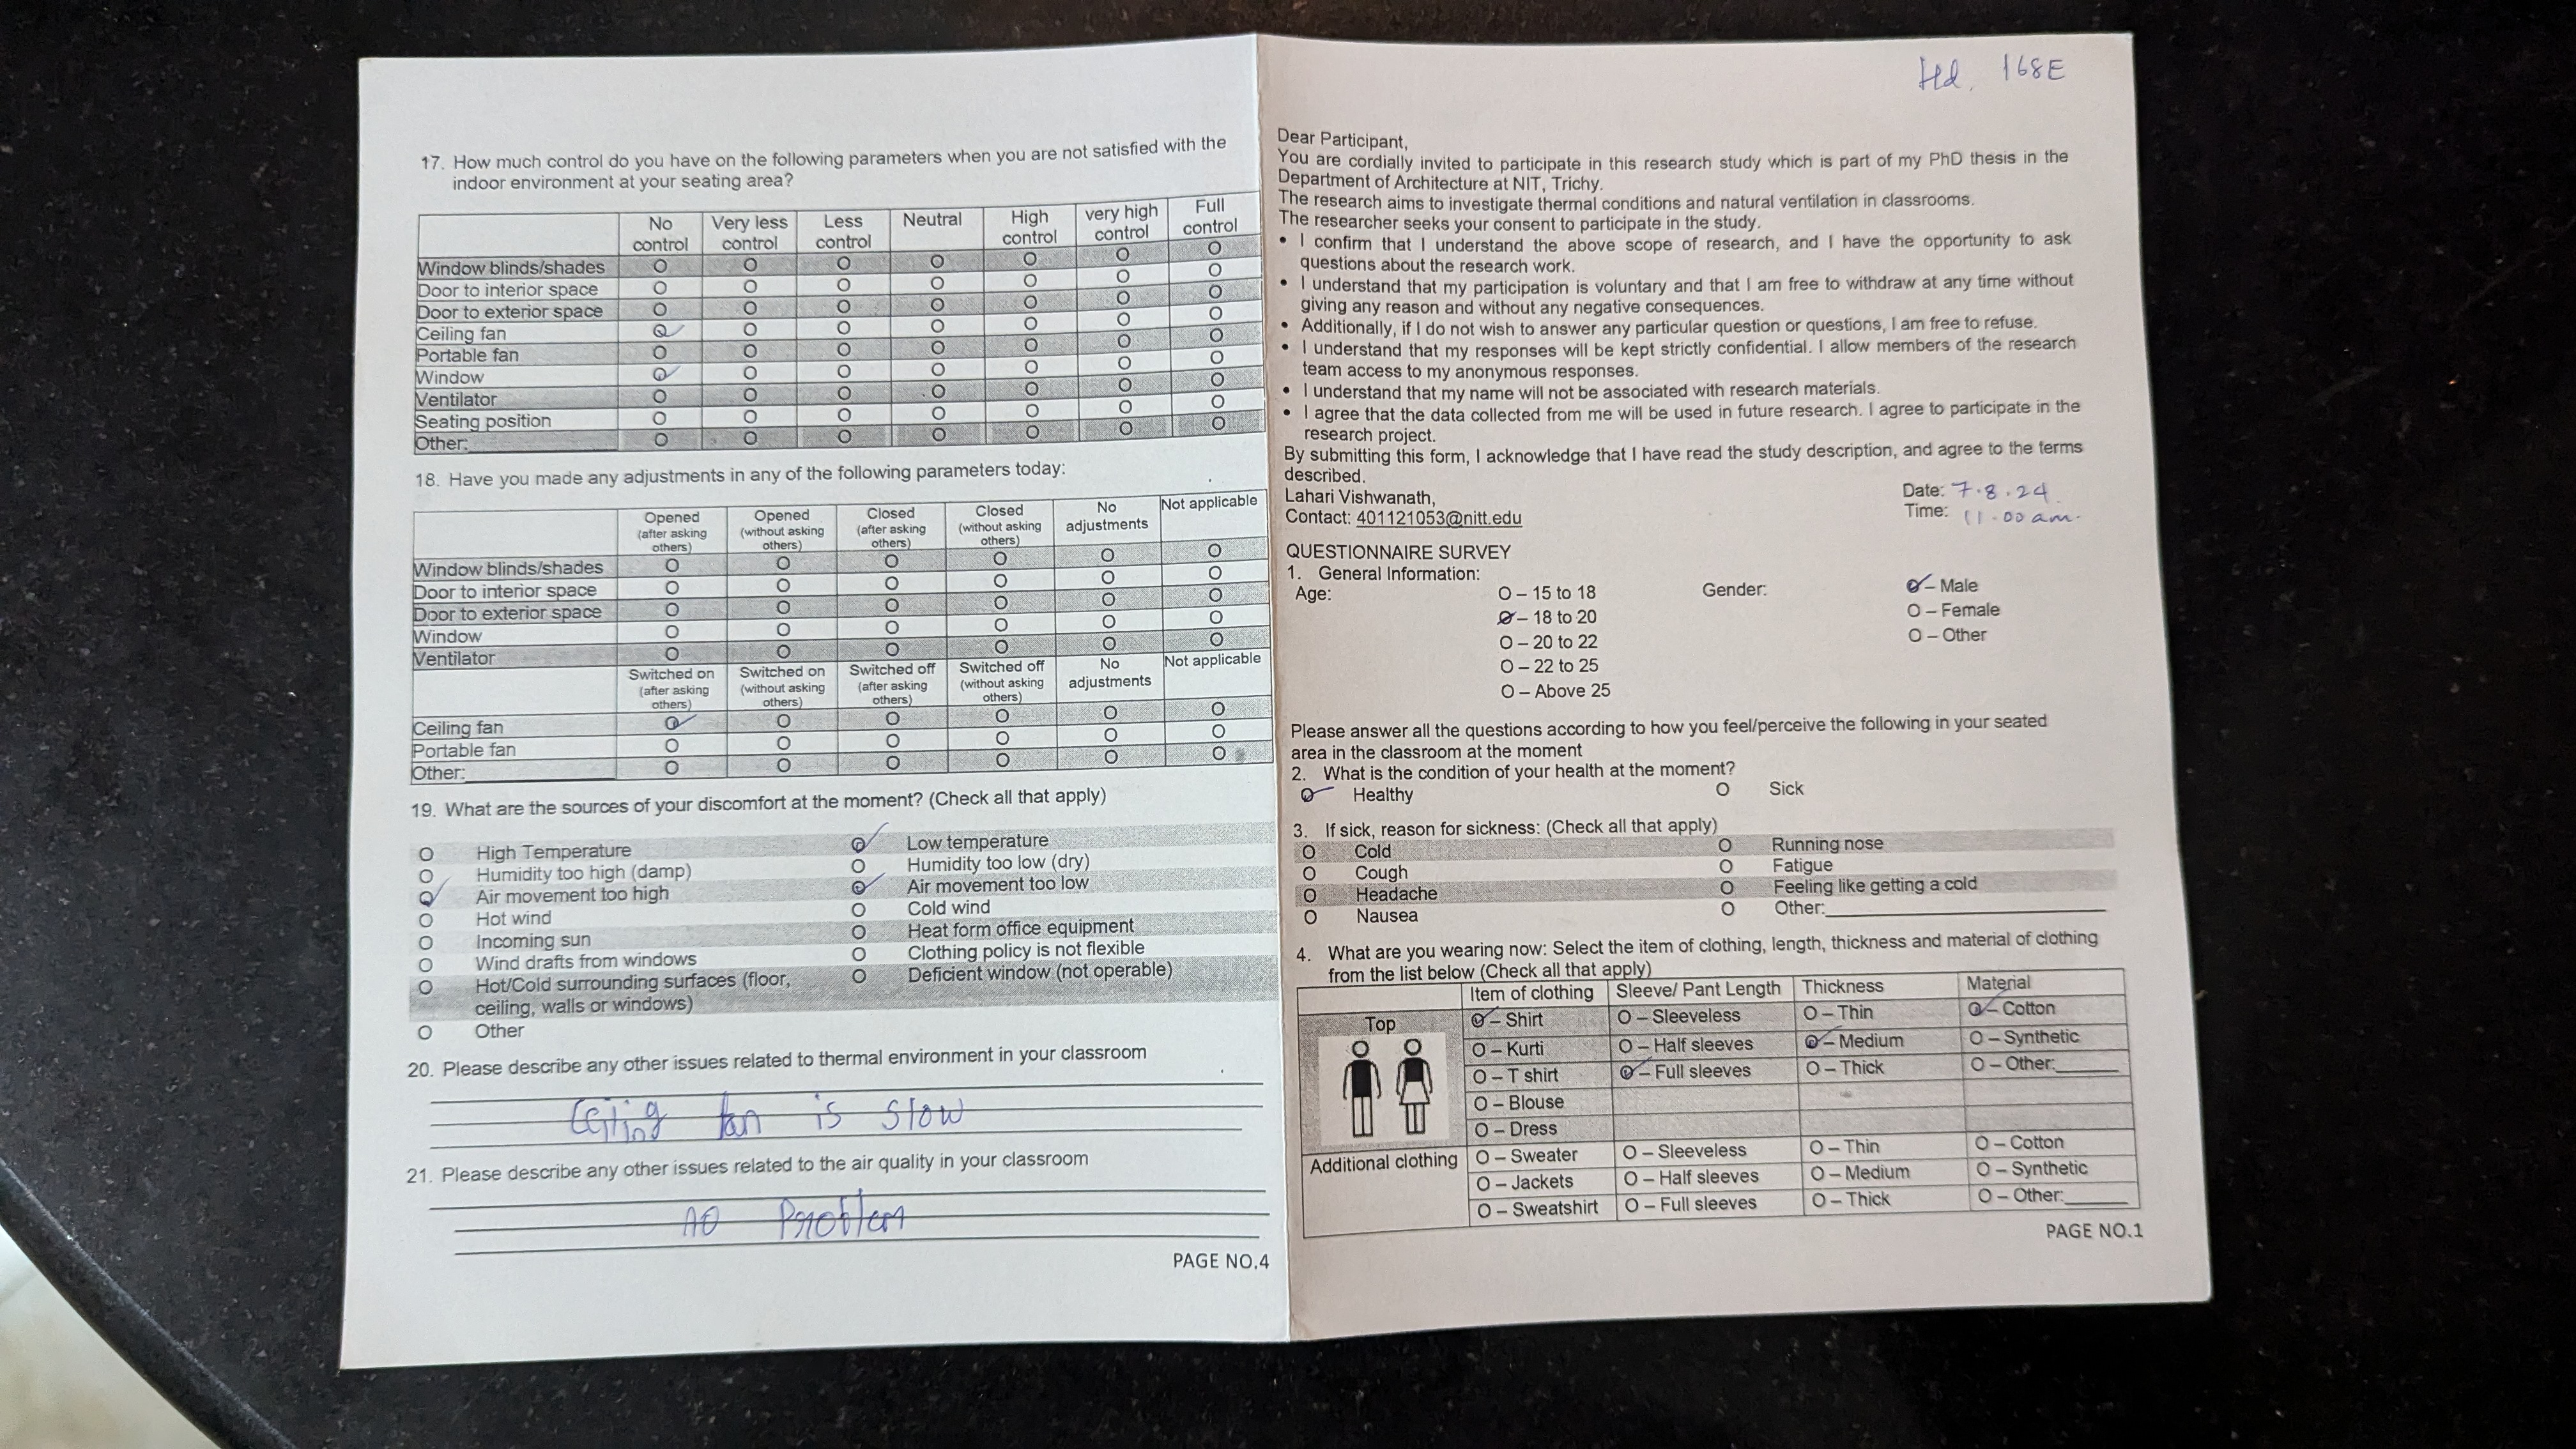 17. How much control do you have on the following parameters when you are not satisfied with the
indoor environment at your seating area?
No control Very less control Less control Neutral High control very high control Full control
Window blinds/shades O O O O O O O
Door to interior space O O O O O O O
Door to exterior space O O O O O O O
Ceiling fan O O O O O O O
Portable fan O O O O O O O
Window O O O O O O O
Ventilator O O O O O O O
Seating position O O O O O O O
Other: O O O O O O O
18. Have you made any adjustments in any of the following parameters today:
Opened (after asking others) Opened (without asking others) Closed (after asking others) Closed (without asking others) No adjustments Not applicable
Window blinds/shades O O O O O O
Door to interior space O O O O O O
Door to exterior space O O O O O O
Window O O O O O O
Ventilator O O O O O O
Switched on (after asking others) Switched on (without asking others) Switched off (after asking others) Switched off (without asking others) No adjustments Not applicable
Ceiling fan O O O O O O
Portable fan O O O O O O
Other: O O O O O O
19. What are the sources of your discomfort at the moment? (Check all that apply)
O High Temperature O Low temperature
O Humidity too high (damp) O Humidity too low (dry)
O Air movement too high O Air movement too low
O Hot wind O Cold wind
O Incoming sun O Heat form office equipment
O Wind drafts from windows O Clothing policy is not flexible
O Hot/Cold surrounding surfaces (floor, O Deficient window (not operable)
ceiling, walls or windows)
O Other
20. Please describe any other issues related to thermal environment in your classroom
fan is slow
21. Please describe any other issues related to the air quality in your classroom
no Problem
PAGE NO.4
168E
Dear Participant,
You are cordially invited to participate in this research study which is part of my PhD thesis in the
Department of Architecture at NIT, Trichy.
The research aims to investigate thermal conditions and natural ventilation in classrooms.
The researcher seeks your consent to participate in the study.
• I confirm that I understand the above scope of research, and I have the opportunity to ask
questions about the research work.
• I understand that my participation is voluntary and that I am free to withdraw at any time without
giving any reason and without any negative consequences.
• Additionally, if I do not wish to answer any particular question or questions, I am free to refuse.
• I understand that my responses will be kept strictly confidential. I allow members of the research
team access to my anonymous responses.
• I understand that my name will not be associated with research materials.
• I agree that the data collected from me will be used in future research. I agree to participate in the
research project.
By submitting this form, I acknowledge that I have read the study description, and agree to the terms
described.
Lahari Vishwanath, Date: 7.8.24
Contact: 401121053@nitt.edu Time: 11.00 am.
QUESTIONNAIRE SURVEY
1. General Information:
Age: O – 15 to 18 Gender: O – Male
O – 18 to 20 O – Female
O – 20 to 22 O – Other
O – 22 to 25
O – Above 25
Please answer all the questions according to how you feel/perceive the following in your seated
area in the classroom at the moment
2. What is the condition of your health at the moment?
O Healthy O Sick
3. If sick, reason for sickness: (Check all that apply)
O Cold O Running nose
O Cough O Fatigue
O Headache O Feeling like getting a cold
O Nausea O Other:
4. What are you wearing now: Select the item of clothing, length, thickness and material of clothing
from the list below (Check all that apply)
Item of clothing Sleeve/ Pant Length Thickness Material
Top O – Shirt O – Sleeveless O – Thin O – Cotton
O – Kurti O – Half sleeves O – Medium O – Synthetic
O – T shirt O – Full sleeves O – Thick O – Other:
O – Blouse
O – Dress
Additional clothing O – Sweater O – Sleeveless O – Thin O – Cotton
O – Jackets O – Half sleeves O – Medium O – Synthetic
O – Sweatshirt O – Full sleeves O – Thick O – Other:
PAGE NO.1